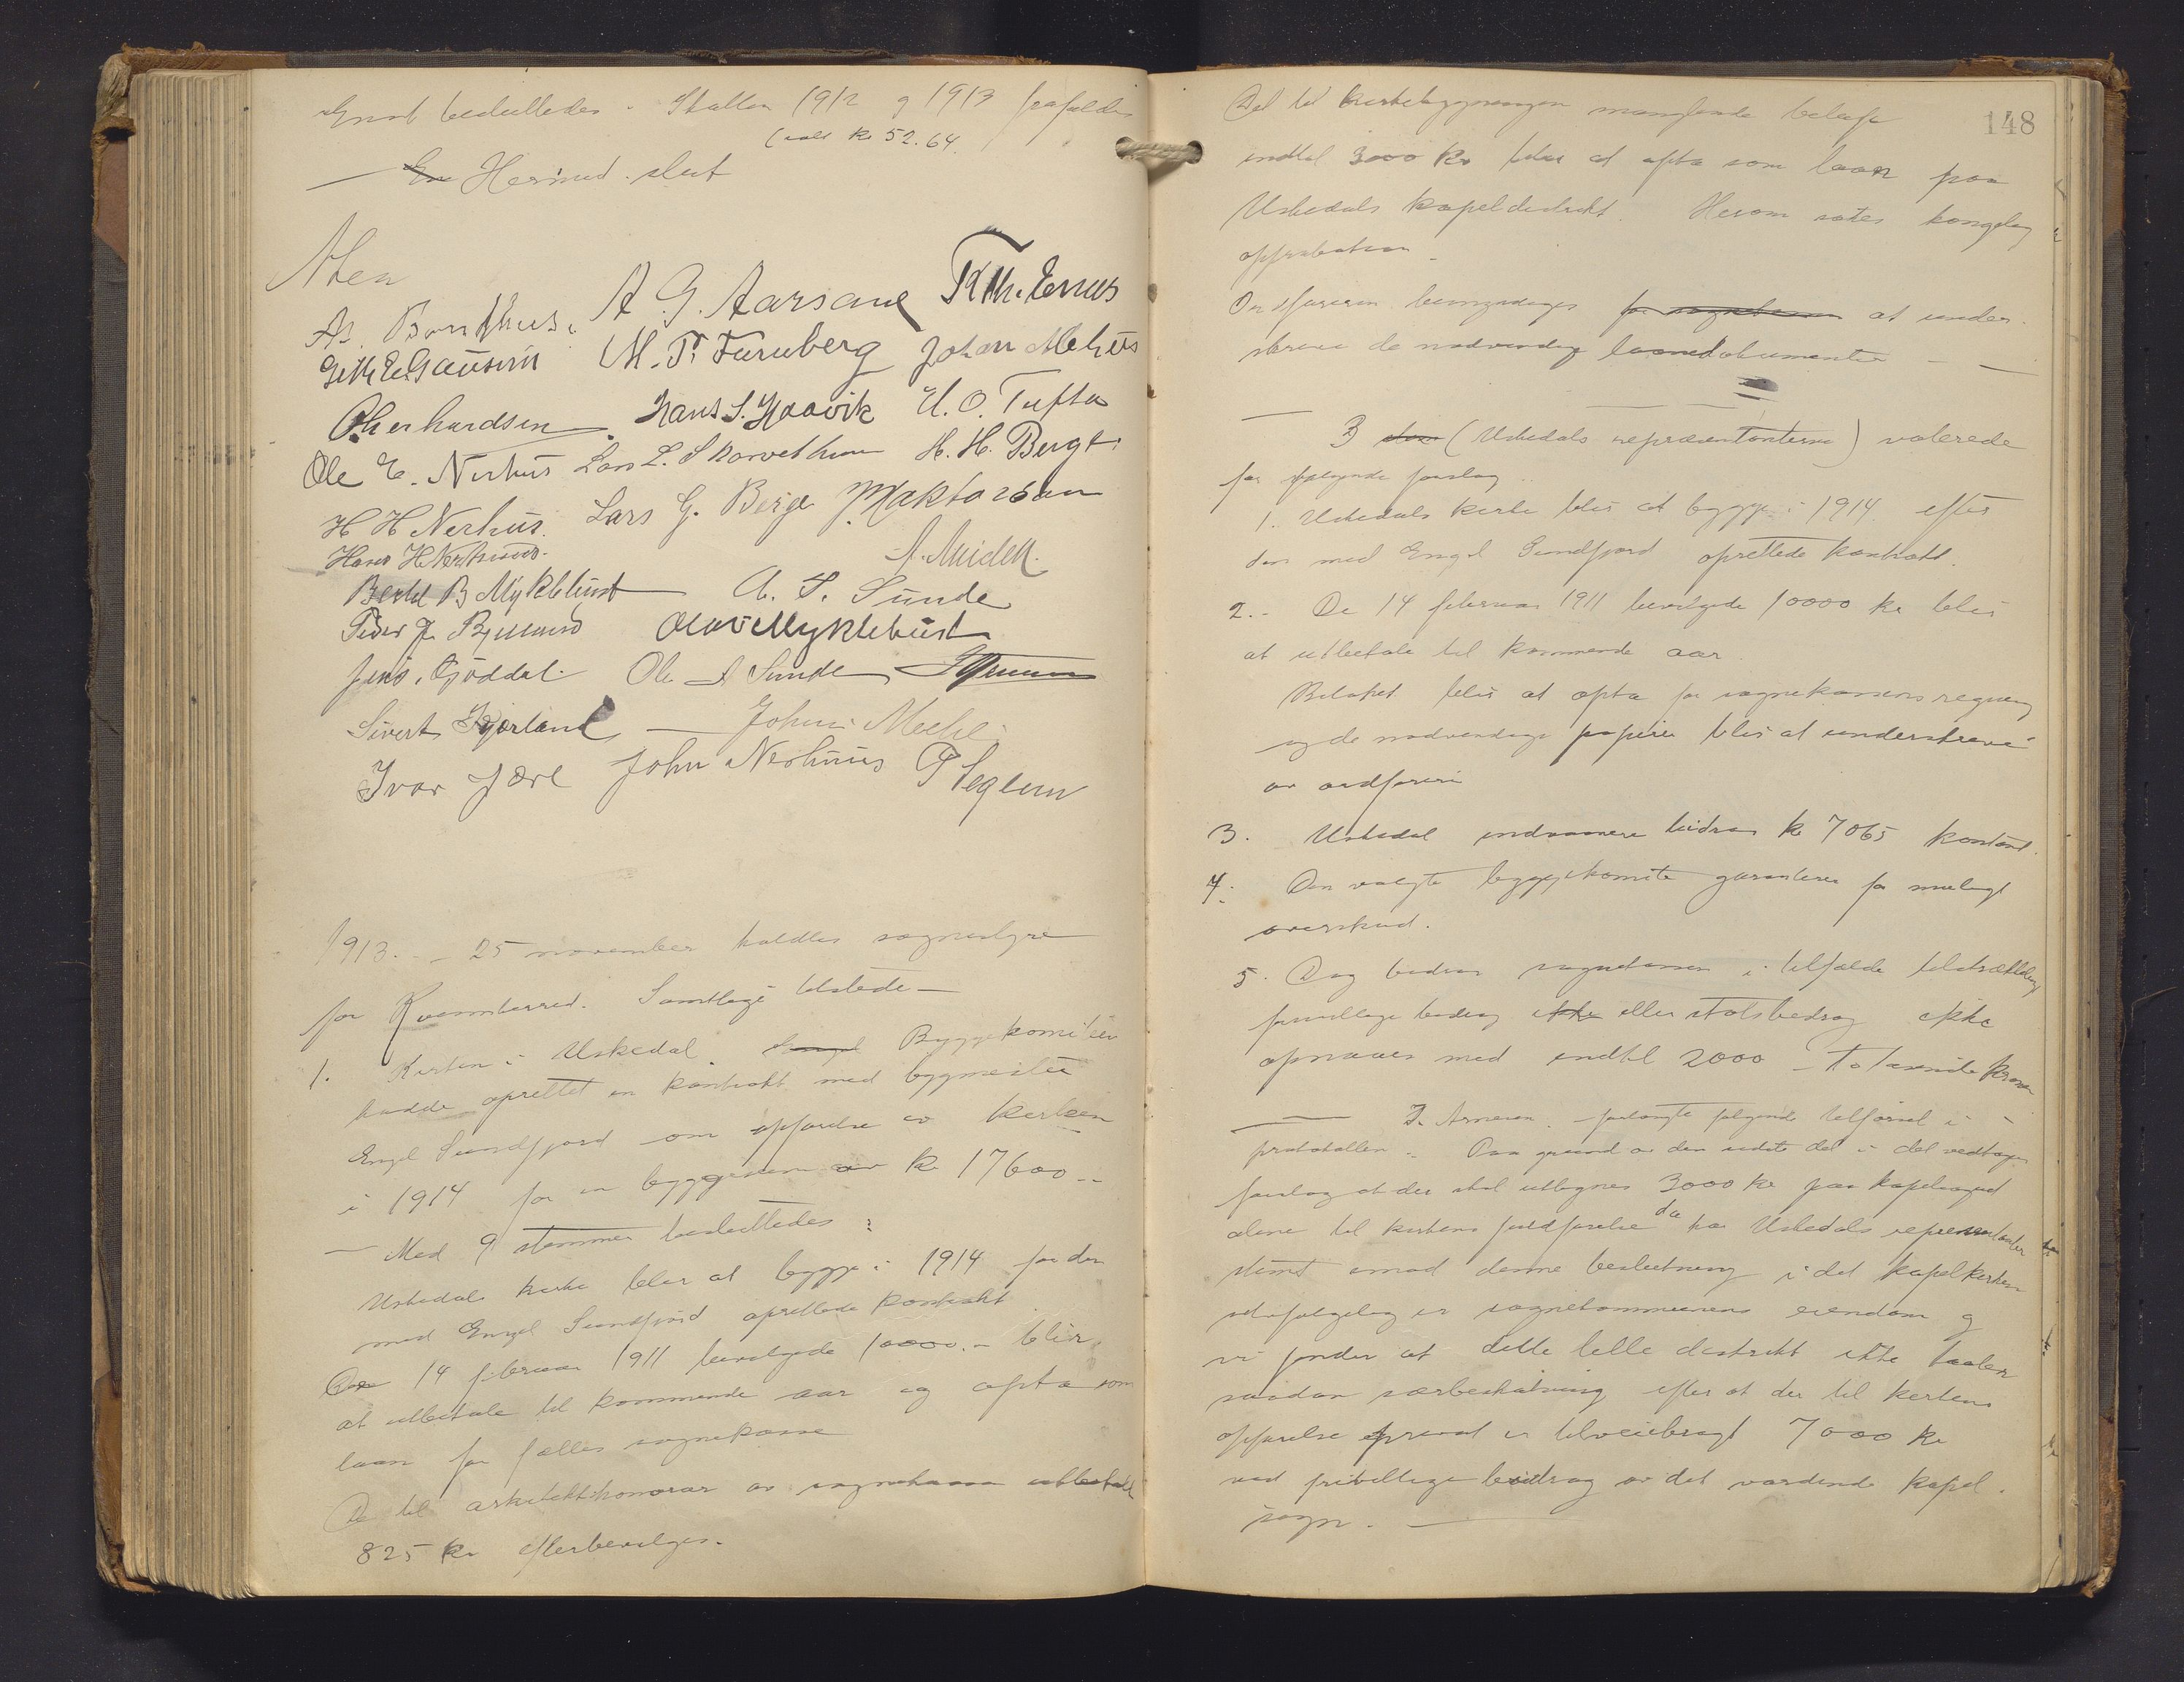 Enst besluttedes. Skatten 1912 g 1913 frafaldes
(ialt kr 52.64.
En Hermed slut
Aten
As. Bonshus. A. G. Aarsand
M. T. Furuberg Johan Mehus
O. Gerhardsen Hans S. Haavik H. O. Tufta
Ole E. Nerhus Lars L. Skorvethun H. H. Berge
H H Nerhus. Lars G. Berge
Hans H. Nerhuus.
Bertel B Myklebust A. S. Sunde
Peder J. Olav Myklebust
Jens. Gjøddal Ole A Sunde
Sivert Kjærland Johan Mehl
Ivar Jære John Nerhuus P Seglem
1913. - 25 november holdtes sognestyre
for Kvamherred. Samtlige tilstede -
1. Kirken i Uskedal. Byggekomiteen
hadde oprettet en kontrakt med bygmester
Engel Sundfjord om opførelse av kirken
i 1914 for en byggesum av kr 17600 --
- Med 9 stemmer besluttedes:
Uskedals kirke blir at bygge i 1914 for den
med Engel Sundfjord oprettede kontrakt.
De 14 februar 1911 bevilgede 10000.- blir
at utbetale til kommende aar og opta som
laan for fælles sognekasse
De til arkitekthonorar av sognekassen utbetalt
825 kr efterbevilges.
148
Det til kirkebygningen manglende beløp
indtil 3000 Kr blir at opta som laan paa
Uskedals kapeldistrikt. Herom søkes kongelig
approbation.
Ordføreren bemyndiges for sognekassen at under-
skrive de nødvendige laanedokumenter -
3 (Uskedals repræsentanterne) voterede
for følgende forslag
1. Uskedals kirke blir at bygge i 1914 efter
den med Engel Sundfjord oprettede kontrakt.
2. - De 14 februar 1911 bevilgede 10000 kr blir
at utbetale til kommende aar.
Beløpet blir at opta for sognekassens regning
og de nødvendige papirer blir at underskrive
av ordføreren
3. Uskedal bidrar kr 7065 kontant.
4. Den valgte byggekomite garanterer for muligt
overskud.
5. Dog bidrar sognekassen i tilfælde tilstrækkelig
frivillige bidrag ikke eller statsbidrag ikke
opnaaes med indtil 2000 - To tusinde kroner
J. Arnesen. forlangte følgende tilførsel i
protokollen. Paa grund av den sidste del i det vedtagne
forslag at der skal utlignes 3000 kr paa kapelsognet
alene til kirkens fuldførelse da har Uskedals repræsentanter
stemt imod denne beslutning i det kapelkirken
selvfølgelig er sognekommunens eiendom g
vi finder at dette lille distrikt ikke taaler
saadan særbeskatning efter at der til kirkens
opførelse privat er tilveiebragt 7000 kr
ved frivillige bidrag av det vordende kapel-
sogn. -